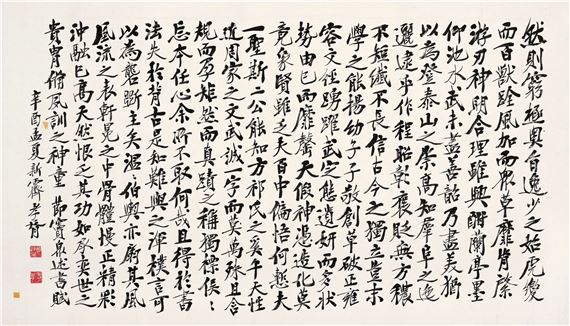 然則窮極奧旨逸少之始虎變
而百獸跧風加而眾草靡肯綮
游刃神明合理雖興酣蘭亭墨
仰池水武未盡善韶乃盡美猶
以為登泰山之崇高知羣阜之迤
邐逮乎作程昭彰褒貶無方穠
不短纖不長信古今之獨立豈末
學之能揚幼子子敬創草破正雍
容文經踴躍武定態遺妍而多狀
勢由己而靡罄天假神憑造化莫
竟象賢雖乏乎百中偏悟何慙夫
一聖斯二公能知方祗之奧乎天性
道周家之文武誠一字而萬殊且含
規而孕矩然而真蹟之稱獨標俟俟
忘本任心余所不取何哉且得於書
法失於背古是知難與之渾樸言可
以為斷主矣溫伯與亦其風
風流之表軒冕之中骨髓模正精彩
沖融已高天然恨乏其功如承奕世之
貴胄備風訓之神童 節竇臮述書賦
辛酉孟夏新霽孝胥